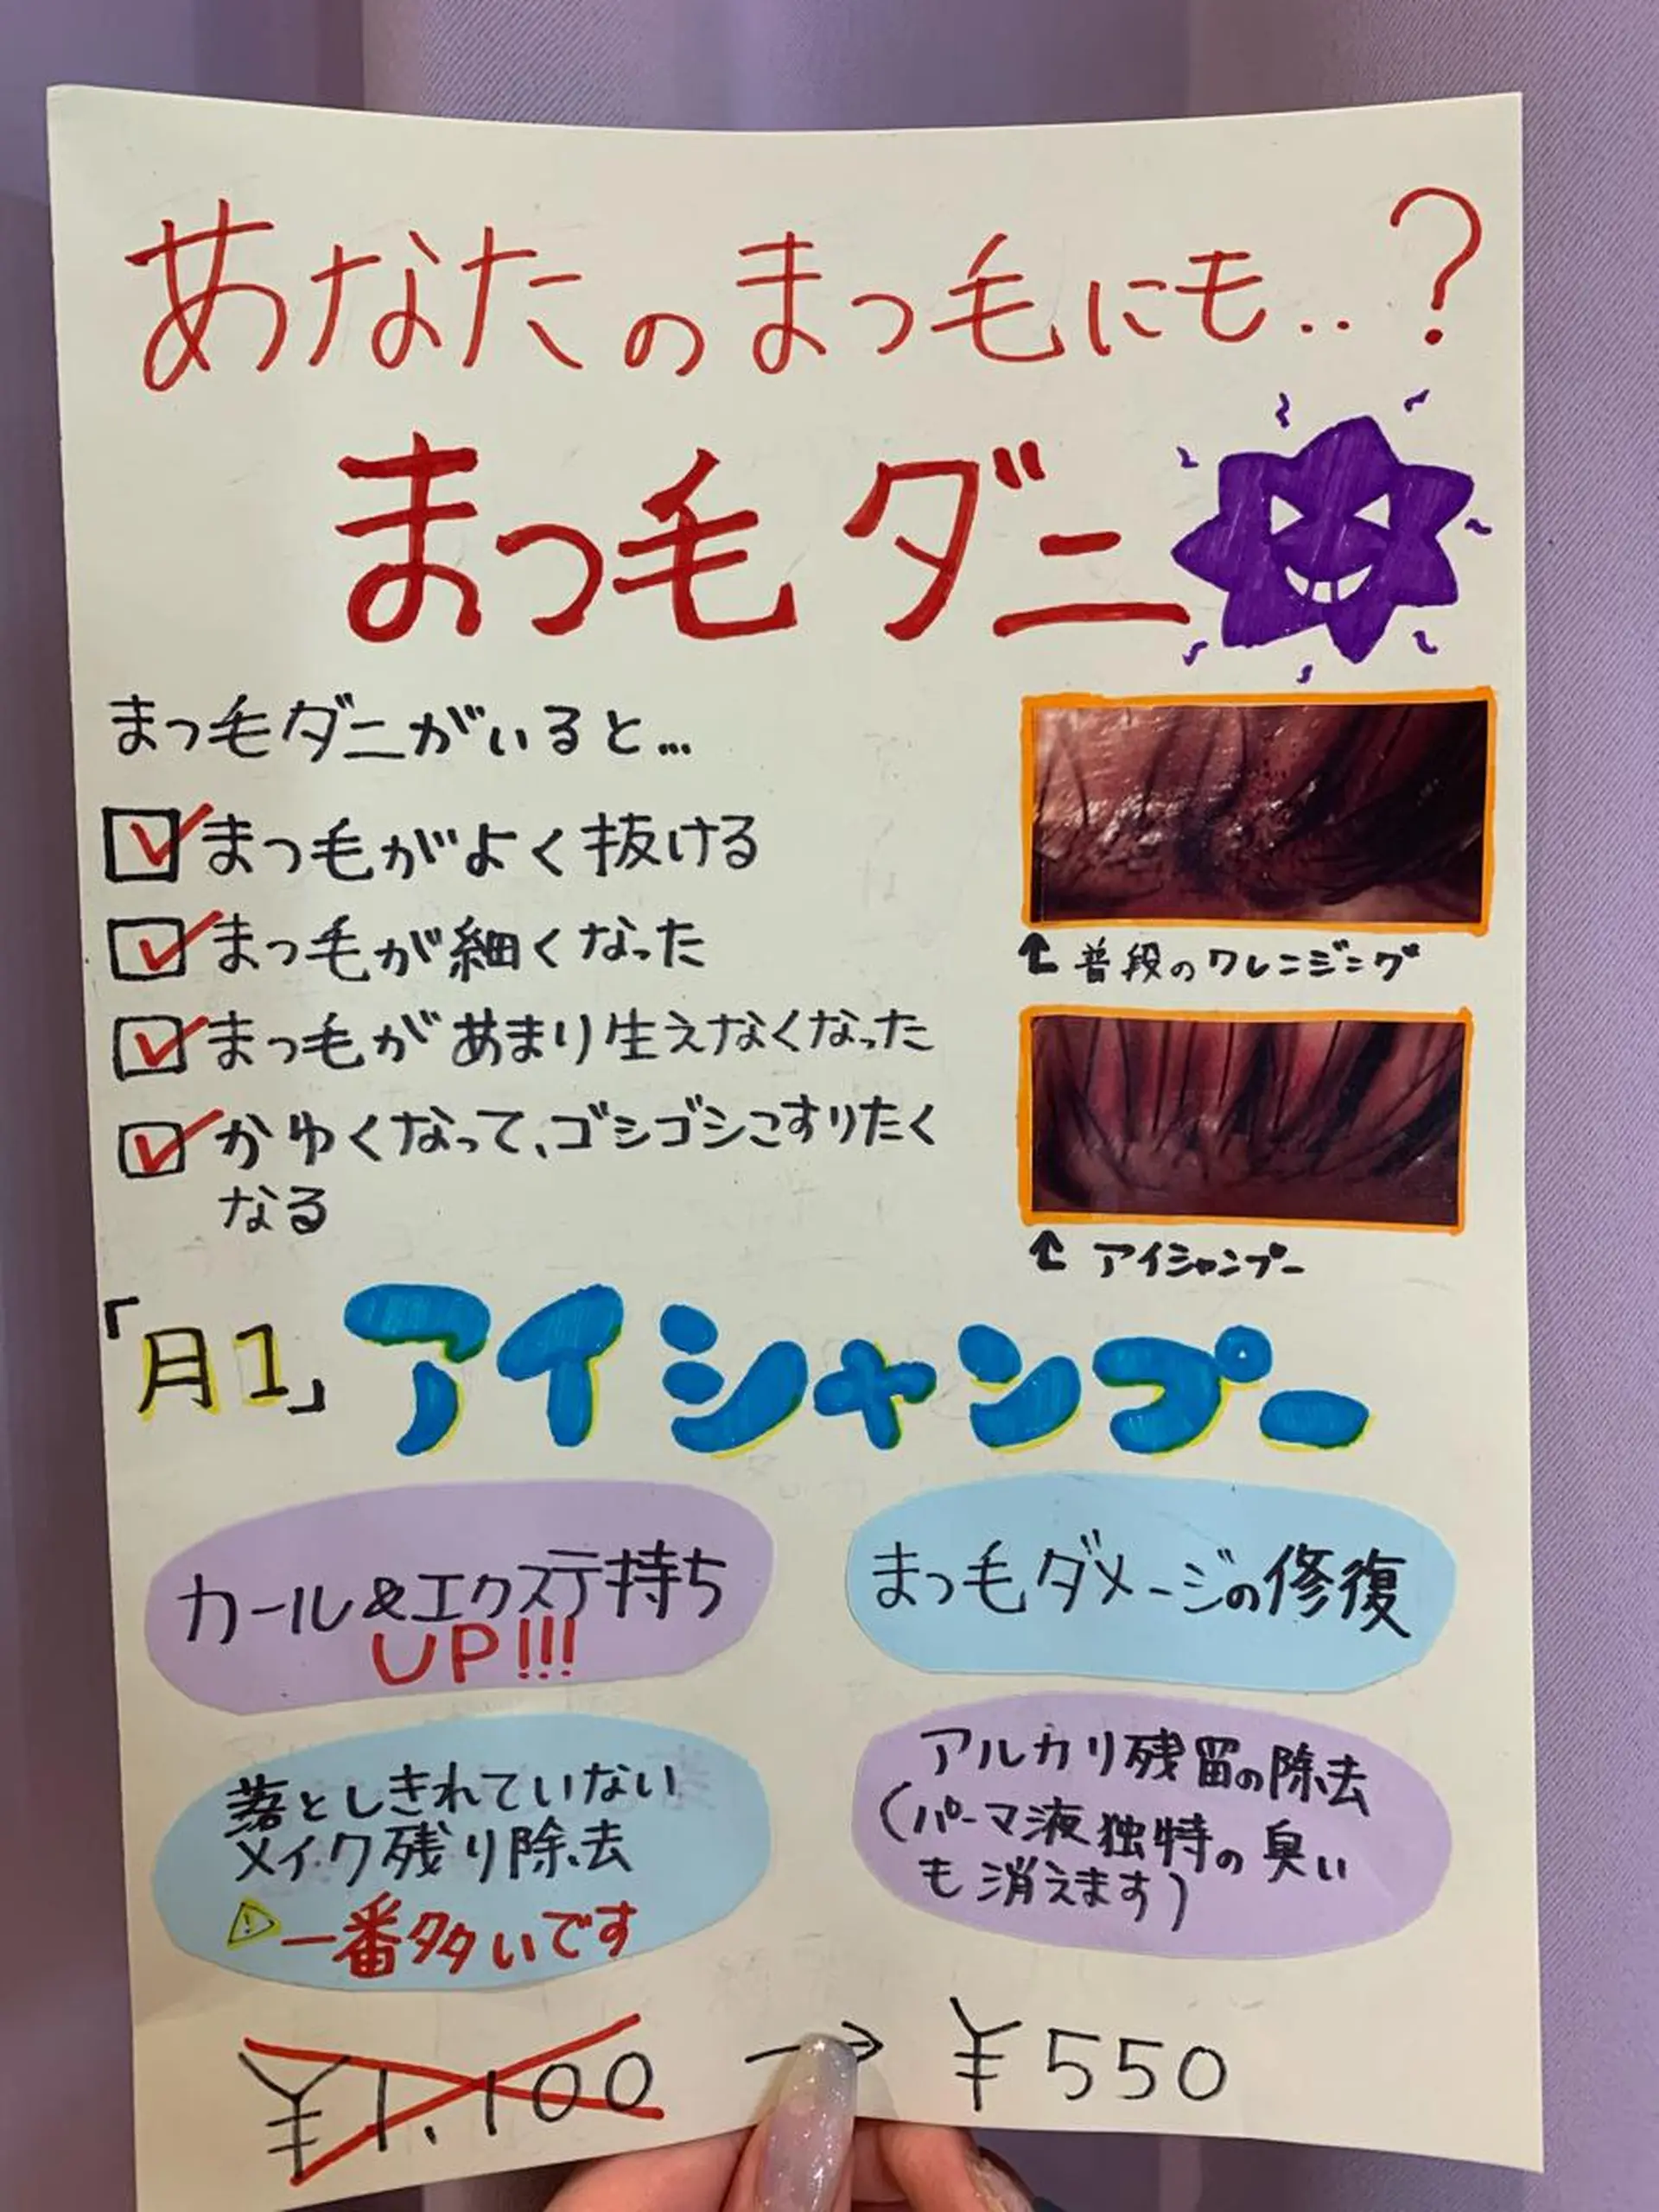 あなたのまつ毛にも..?
まつ毛ダニ
まつ毛ダニがいると...
まつ毛がよく抜ける
まつ毛が細くなった
まつ毛があまり生えなくなった
かゆくなって、ゴシゴシこすりたく
なる
↑普段のクレンジング
↑アイシャンプー
「月1」アイシャンプー
カール&エクステ持ち
UP!!!
まつ毛ダメージの修復
落としきれていない
メイク残り除去
⚠一番多いです
アルカリ残留の除去
(パーマ液独特の臭い
も消えます)
¥1,100→¥550